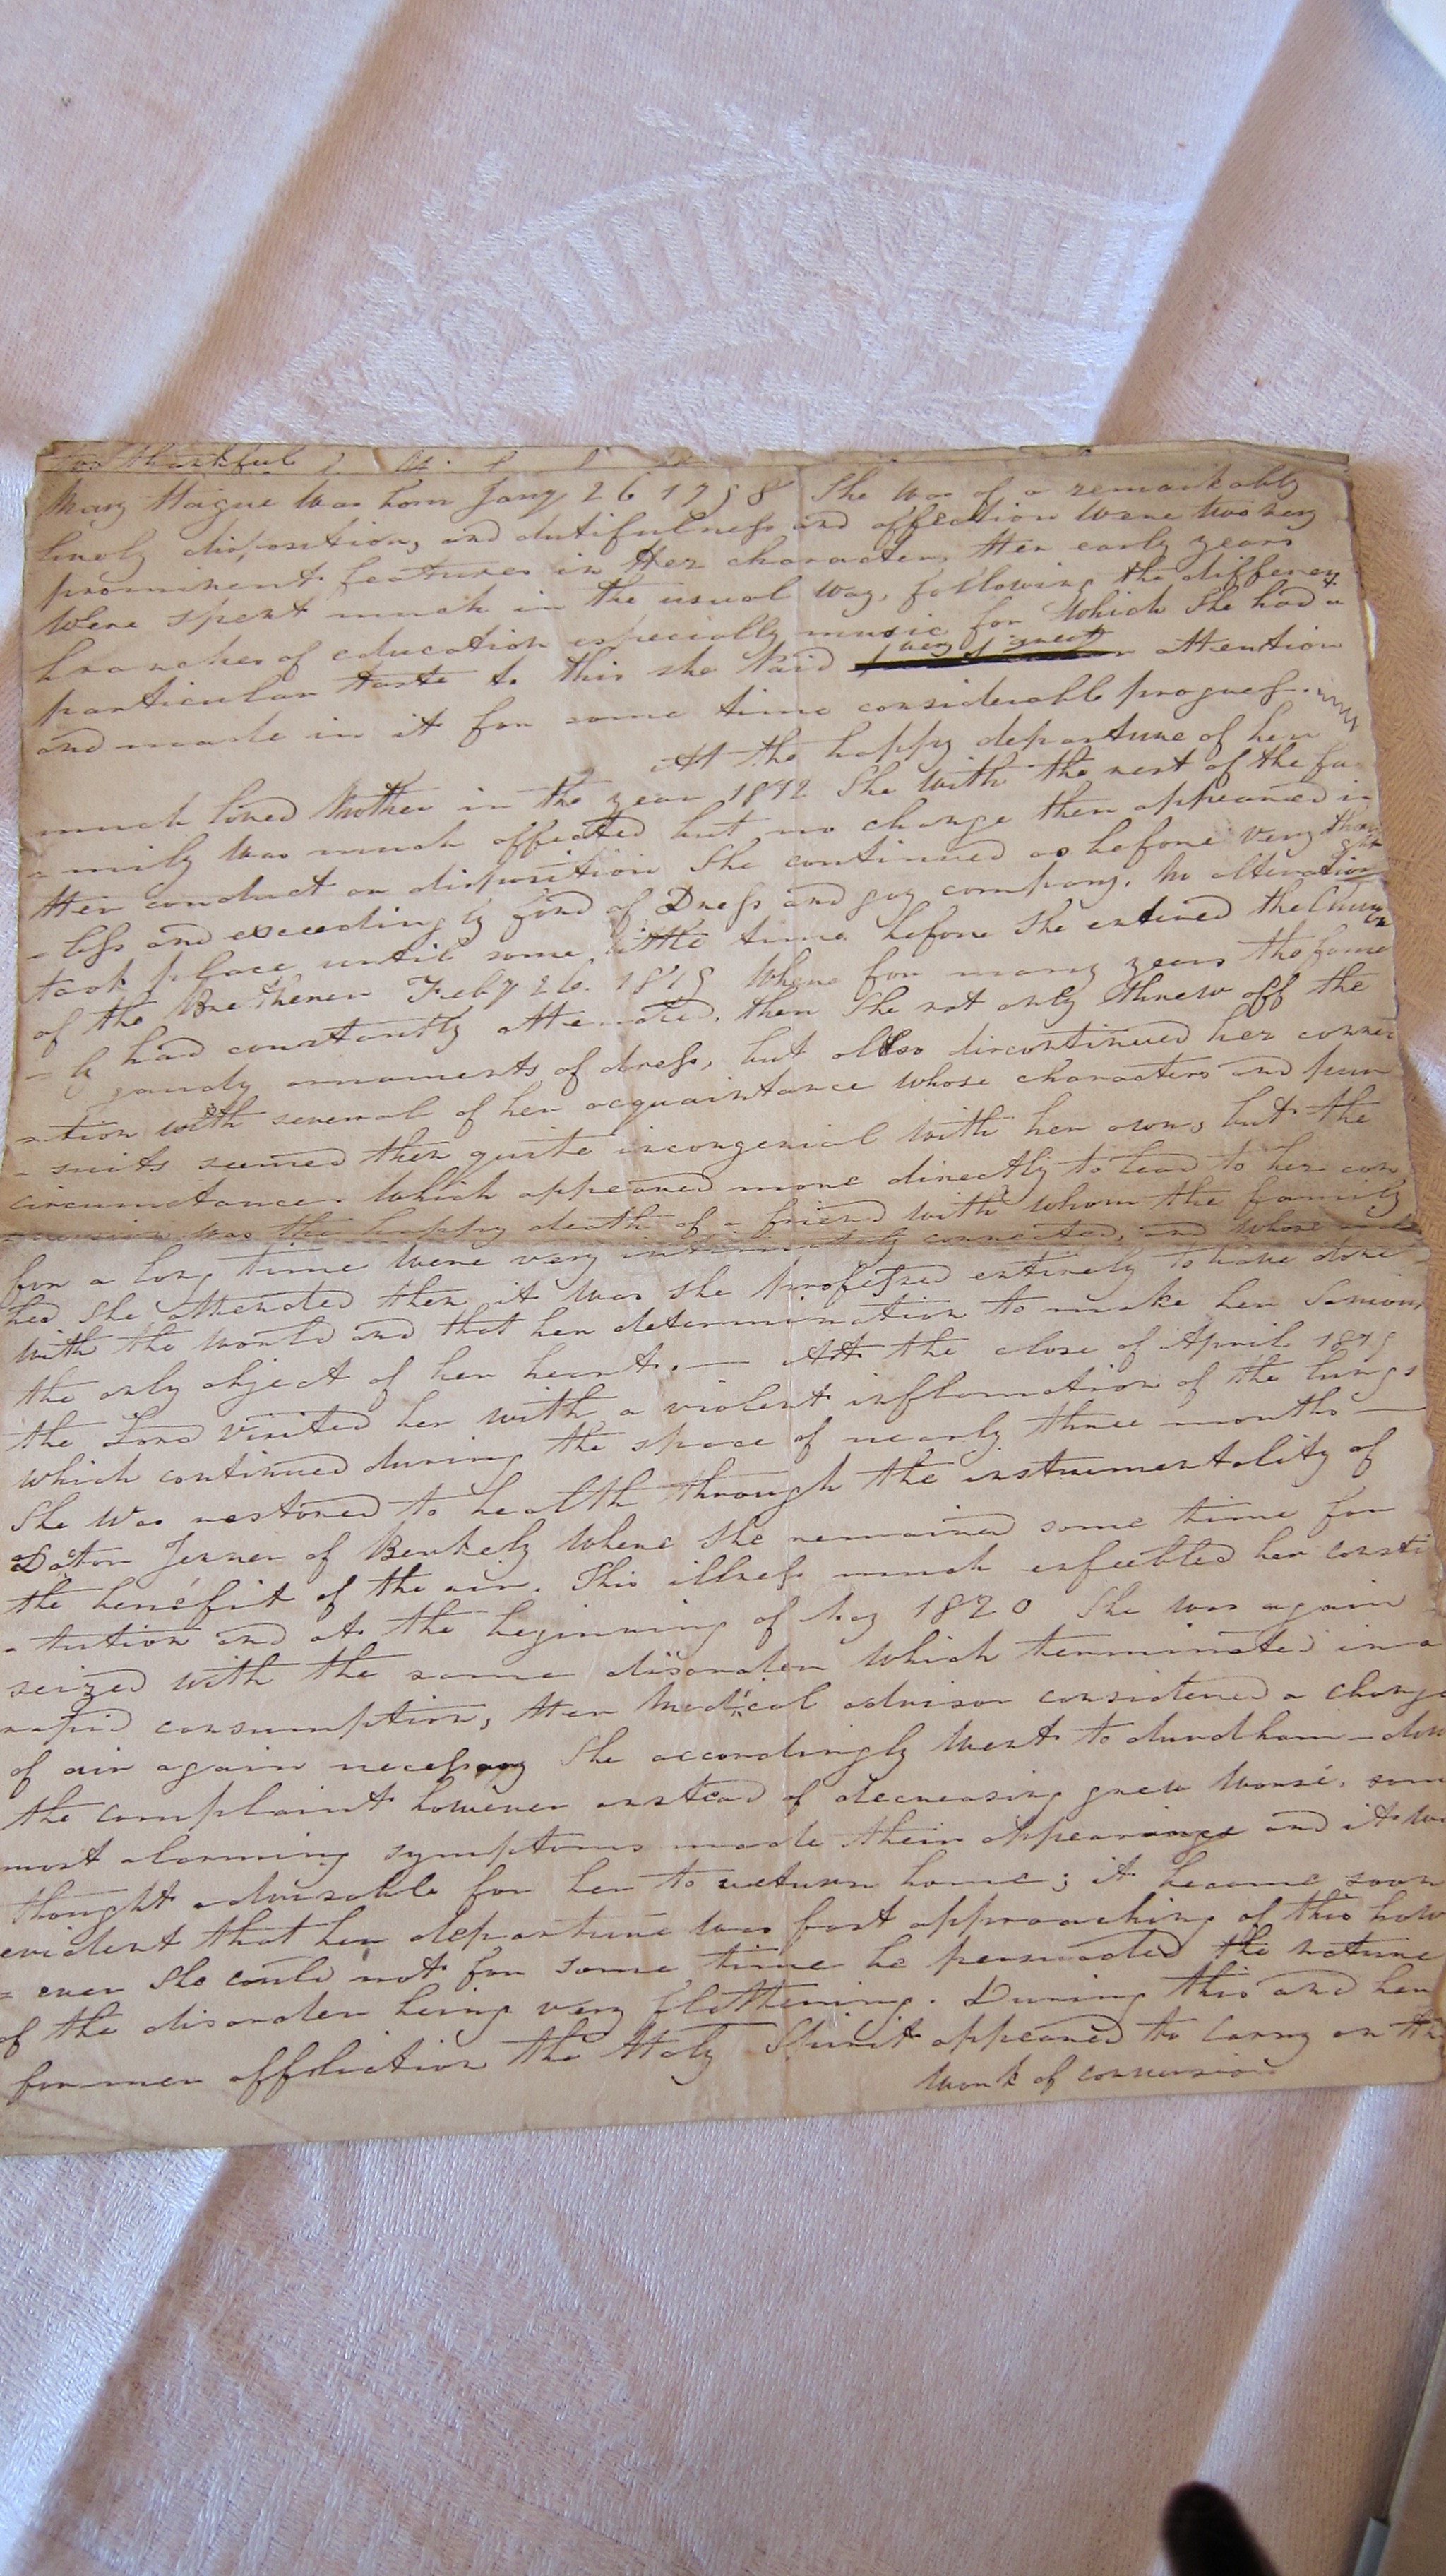 too thankful
Mary Hague was born Jany 26 1798 She was of a remarkably
lively disposition, and dutifulness and affection were two very
prominent features in Her character. Her early years
Were spent much in the usual way, following the different
branches of education especially music for Which She had a
particular taste to this she Paid very great attention
and made in it for some time considerable progress.
At the happy departure of her
much loved Mother in the year 1812 She with the rest of the fa
-mily was much affected but no change then appeared in
Her conduct or disposition She continued as before very thought
-less and exceedingly fond of Dress and gay company. No alteration
took place until some little time before She entered the Church
of the Bretheren Feby 26. 1819 Where for many years the fami
-ly had constantly attended. then She not only threw off the
gaudy ornaments of dress, but allso discontinued her connec
-tion with several of her acquaintance whose characters and pur
-suits seemed then quite incongenial with her own, but the
circumstance Which appeared more directly to lead to her con
version was the happy death of a friend with whom the family
for a long time were very intimately connected, and whose
bed She attended then it was she professed entirely to have done
with the world and that her determination to make her Saviour
the only object of her heart. — At the close of April 1819
the Lord visited her with a violent inflamation of the lungs
which continued during the space of nearly three months —
She was restored to health through the instrumentality of
Doctor Jenner of Berkely Where She remained some time for
the benefit of the air. This illness much enfeebled her consti
-tution and at the beginning of May 1820 She was again
seized with the same disorder which terminated in a
rapid consumption, Her Medical advisor considered a change
of air again necessary She accordingly went to dundham-down
the complaint however instead of decreasing grew worse, some
most alarming symptoms made their appearange and it was
thought advisable for her to return home; it became soon
evident that her departure was fast approaching of this how
=ever She could not for some time be persuaded the nature
of the disorder being very flattering. During this and her
former affliction the Holy Spirit appeared to carry on the
work of conversion